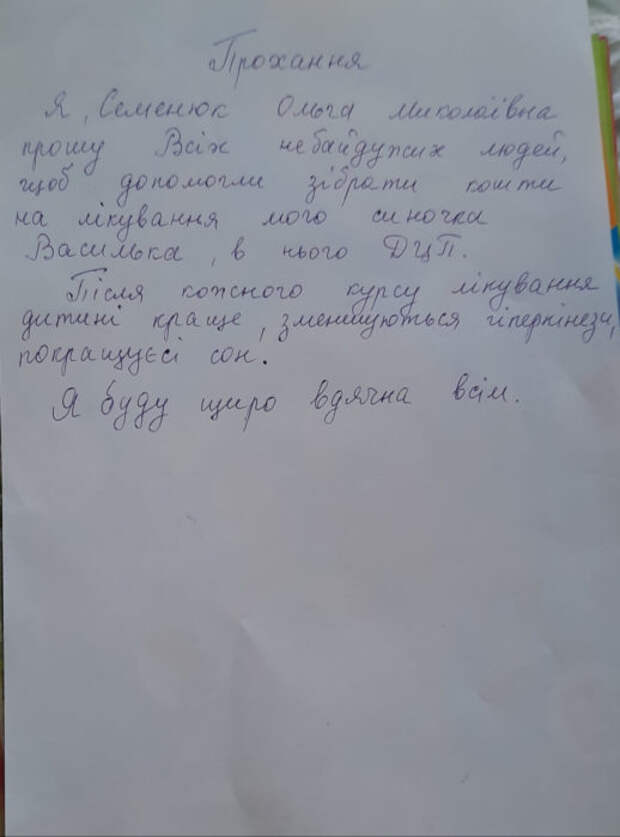 Прохання
Я, Семенюк Ольга Миколаївна
прошу Всіх небайдужих людей,
щоб допомогли зібрати кошти
на лікування мого синочка
Василька, в нього ДЦП.
Після кожного курсу лікування
дитині краще, зменшуються гіперкінези,
покращуєсі сон.
Я буду щиро вдячна всім.